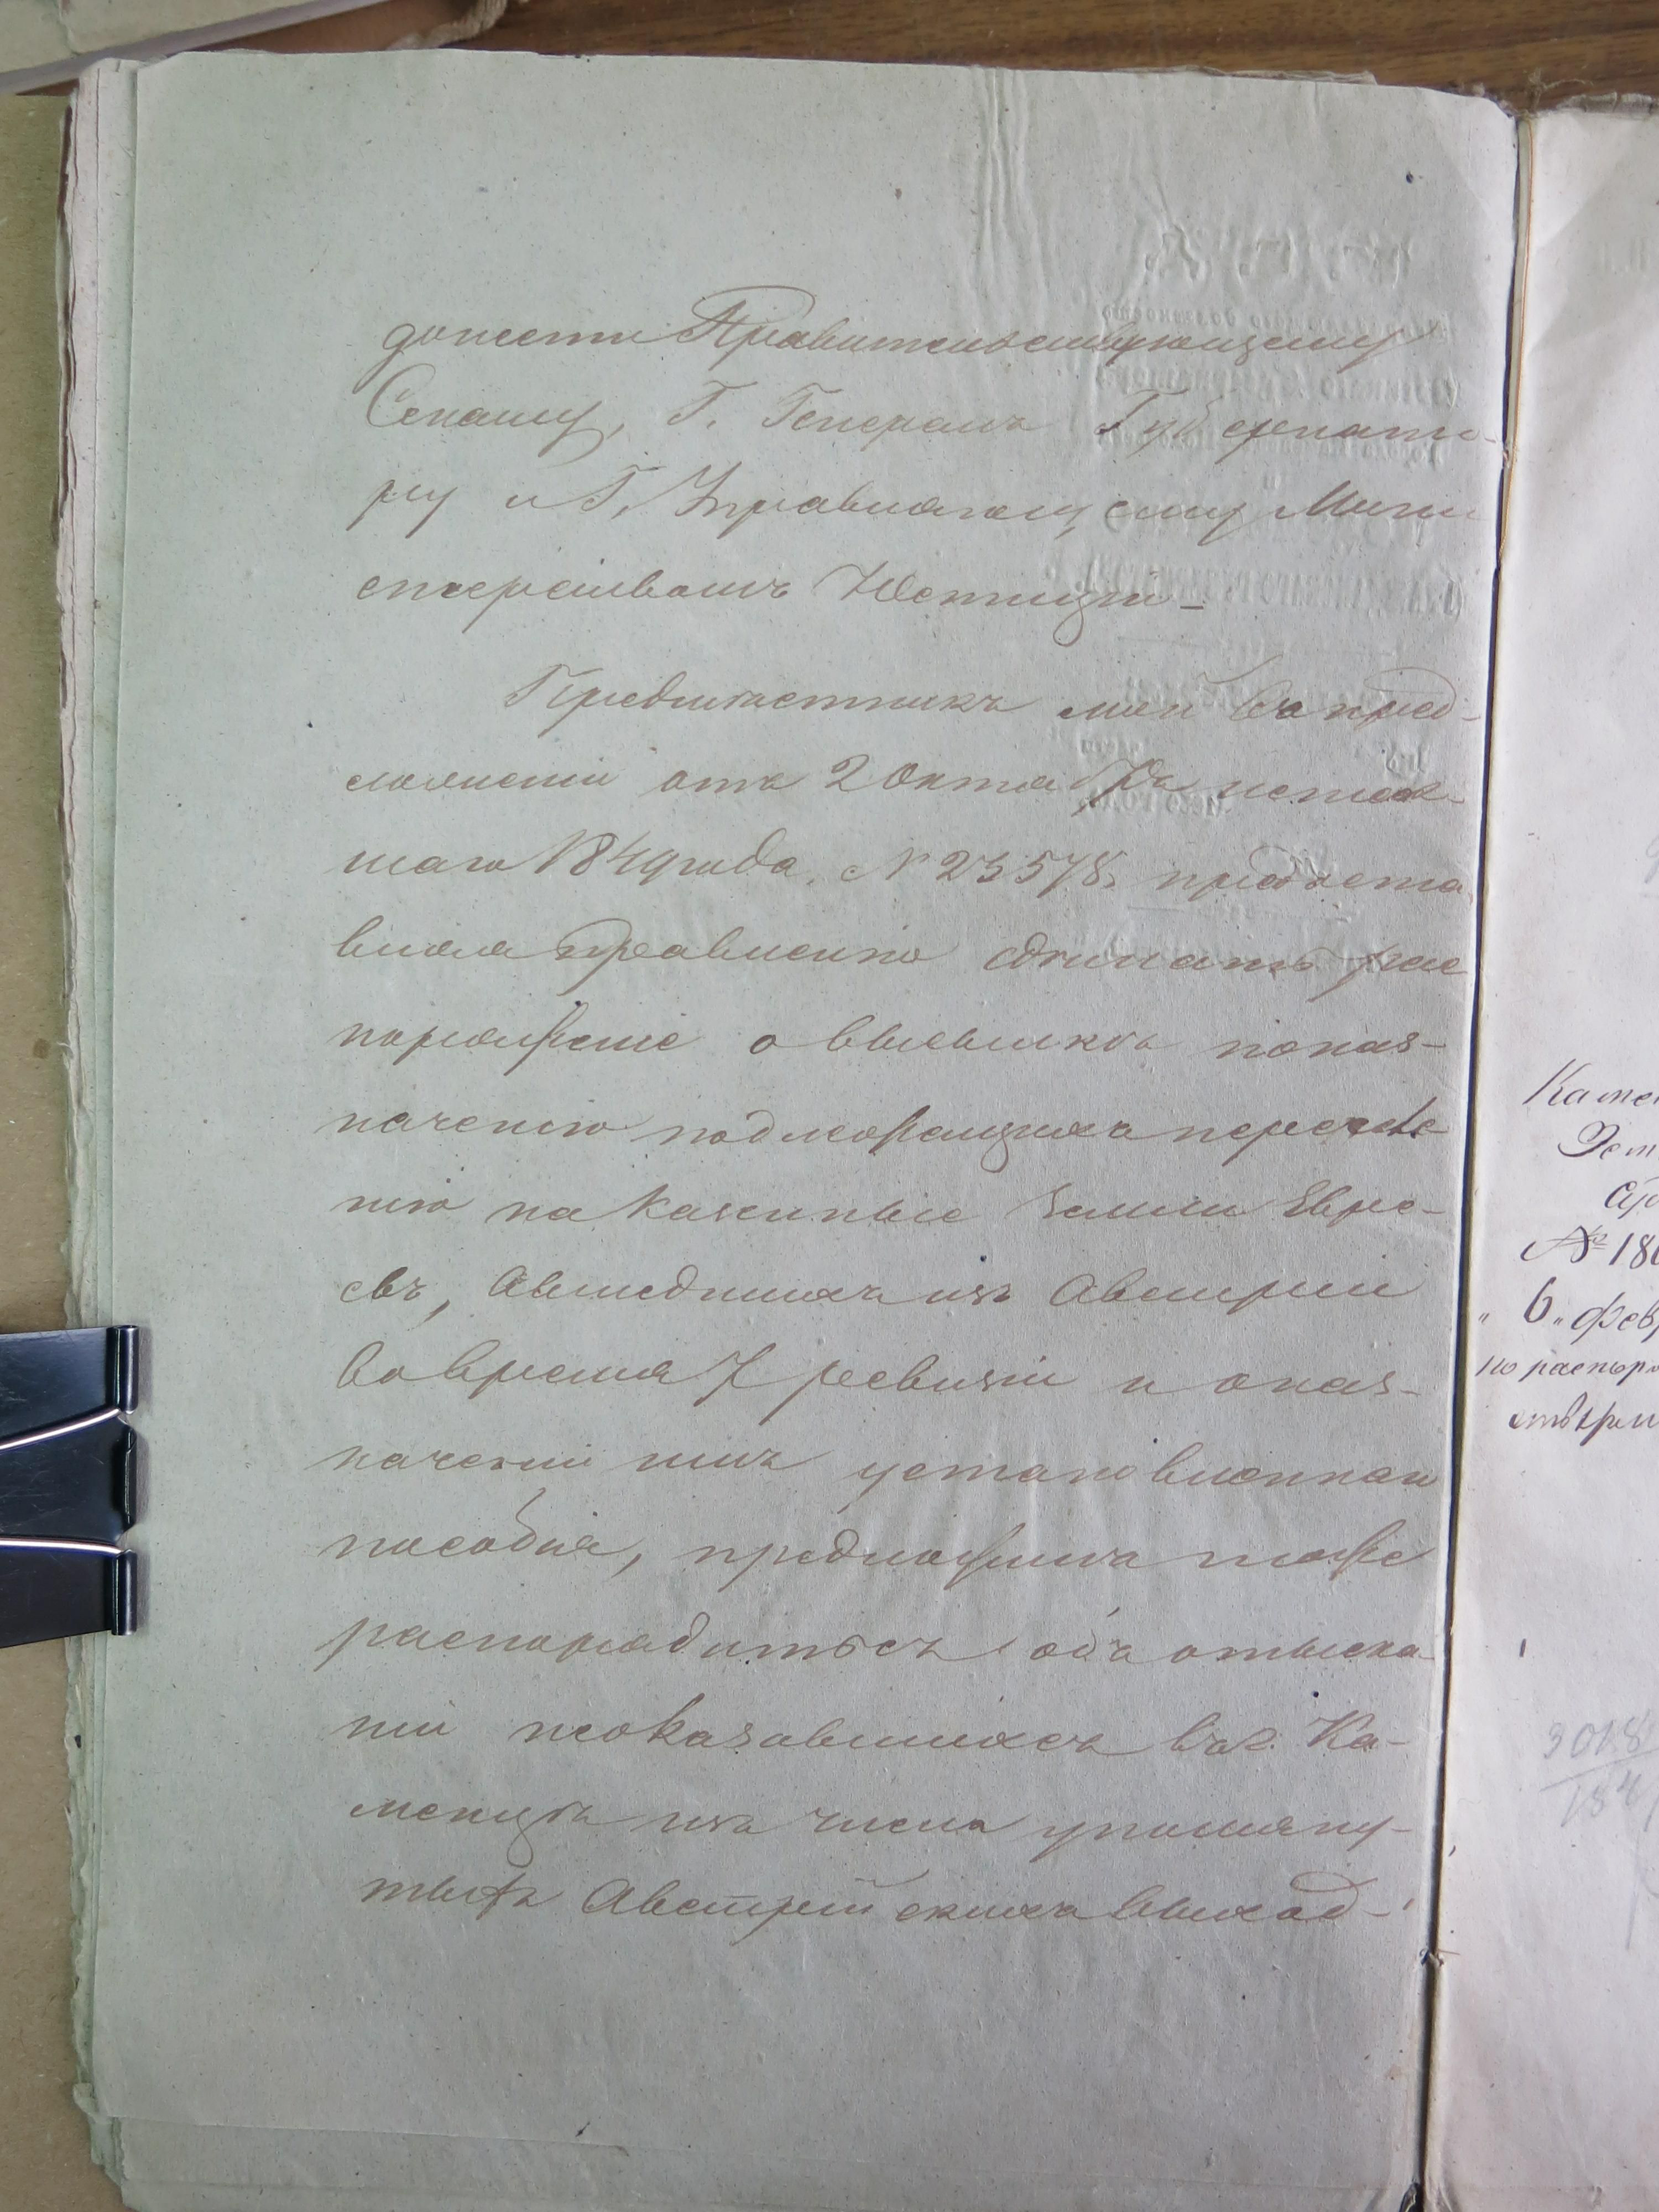 донести Правительствующему
Сенату, Г. Генералъ Губернато-
ру и Г. Управляющему Мини
стерствомъ Юстиціи –
Предмѣстникъ мой въ пред-
ложеніи отъ 2 Октября истек-
шаго 1849 года, № 23578, предоста
вляя Правленію сдѣлать рас
поряженіе о высылкѣ по наз-
наченію подлежащихъ переселе
нію на казенные земли Евре-
евъ, вышедшихъ изъ Австріи
во время 7 ревизіи и о наз-
наченіи имъ установленнаго
пособія, предложилъ тоже
распорядиться объ отыска-
ніи неоказавшихся въ г. Ка-
менцѣ изъ числа упомяну-
тыхъ Австрійскихъ выход-
Камен
Зем
Суд
№ 180
"6" февр
по распоря
3018
184